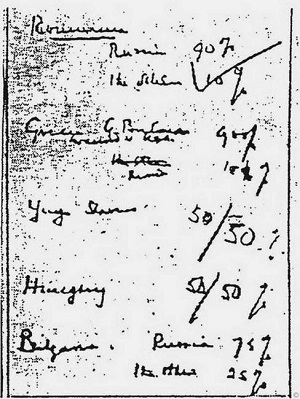 Roumania
Russia 90%
The others 10%
Greece G. Britain 90%
in accord with USA
The others
Russia 10%
Yugo Slavia 50/50%
Hungary 50/50%
Bulgaria. Russia 75%
The others 25%